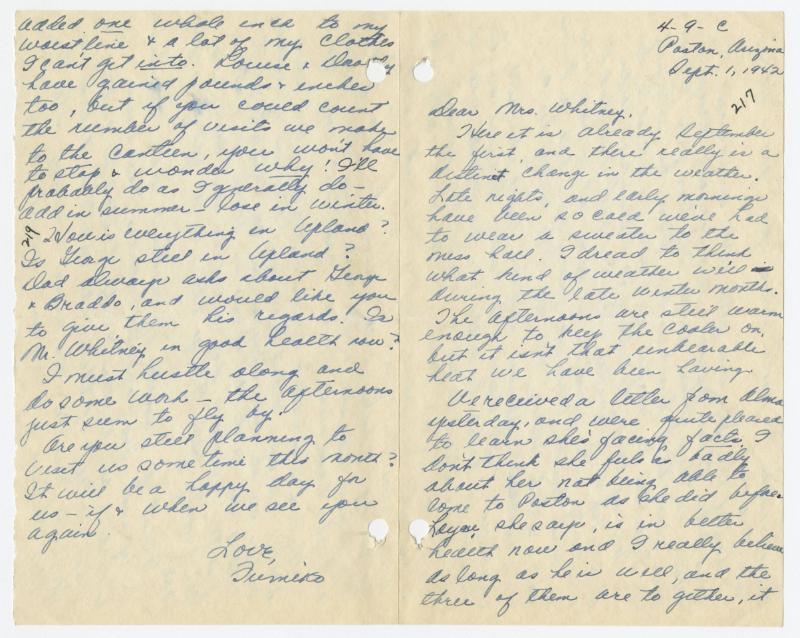 4-9-C
Poston, Arizona
Sept. 1, 1942
217
Dear Mrs. Whitney,
Here it is already September
the first, and there really is a
distinct change in the weather.
Late nights, and early mornings
have been so cold we've had
to wear a sweater to the
mess hall. I dread to think
what kind of weather will
during the late Winter months.
The afternoons are still warm
enough to keep the cooler on,
but it isn't that unbearable
heat we have been having.
We received a letter from Alma
yesterday, and were quite pleased
to learn she's facing facts. I
don't think she feels as badly
about her not being able to
come to Poston as she did before.
she says, is in better
health now and I really believe
as long as he is well, and the
three of them are to gether, it
added one whole inch to my
waistline & a lot of my clothes
I can't get into. Louise &
have gained pounds & inches
too, but if you could count
the number of visits we make
to the canteen, you won't have
to stop & wonder why! I'll
probably do as I generally do -
add in summer - lose in winter.
219
How is everything in Upland?
Is George still in Upland?
Dad always asks about George
& Braddo, and would like you
to give them his regards. Is
Mr. Whitney in good health now?
I must hustle along and
do some work - the afternoons
just seem to fly by.
Are you still planning to
visit us some time this month?
It will be a happy day for
us - if & when we see you
again.
Love,
Fumiko